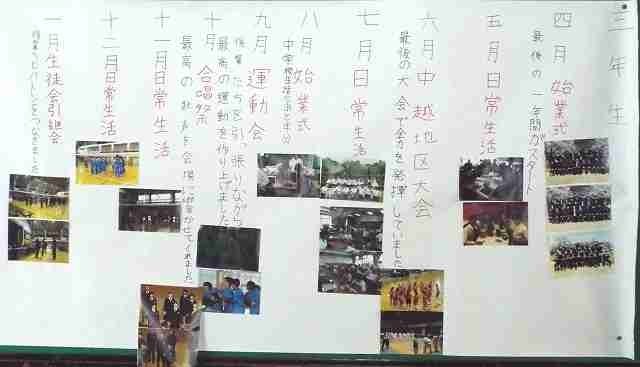 三年生
四月 始業式
最後の一年間がスタート
五月 日常生活
六月 中越地区大会
最後の大会で全力を発揮していました
七月 日常生活
八月 始業式
九月 運動会
後輩たちを引っ張りながら
最高の運動を作り上げました
十月 合唱祭
最高の歌声を会場に響かせてくれました
十一月 日常生活
十二月 日常生活
一月 生徒会引継会